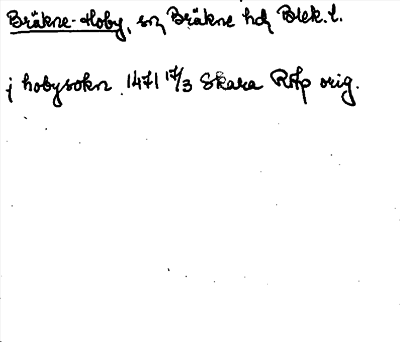 Bräkne-Hoby, sn, Bräkne hd, Blek. l.
j hobysokn 1471 17/3 Skara RAp orig.